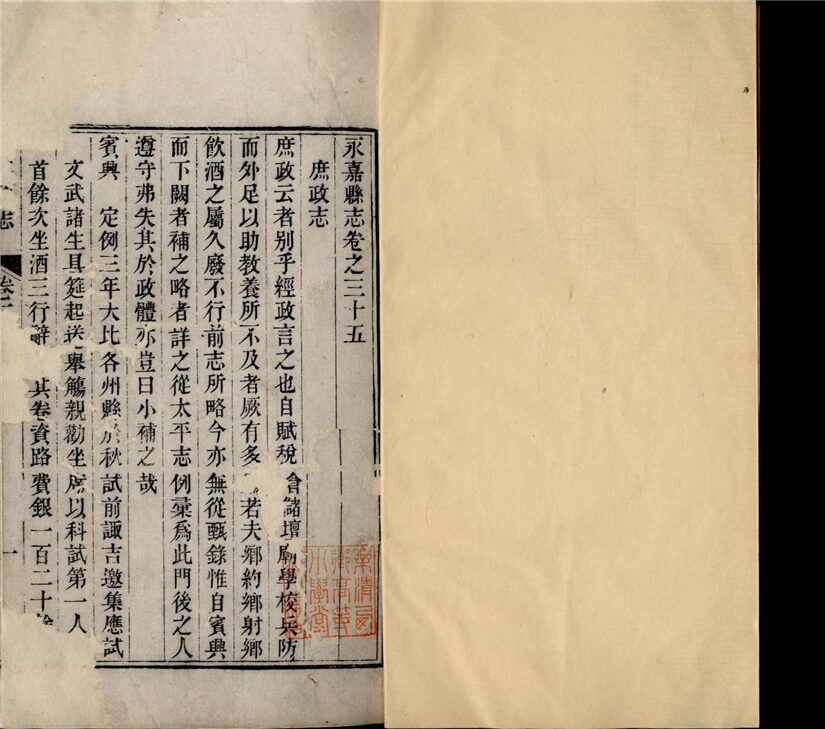 永嘉縣志卷之三十五
庶政志
庶政云者別乎經政言之也自賦稅倉儲壇廟學校兵防
而外足以助教養所不及者厥有多若夫鄉約鄉射鄉
飲酒之屬久廢不行前志所略今亦無從甄錄惟自賓興
而下闕者補之略者詳之從太平志例彙為此門後之人
遵守弗失其於政體亦豈曰小補之哉
賓興 定例三年大比各州縣於秋試前諏吉邀集應試
文武諸生具筵起送舉觴親勸坐席以科試第一人
首餘次坐酒三行辭 其卷資路費銀一百二十餘
志
卷
一
高等
小學堂